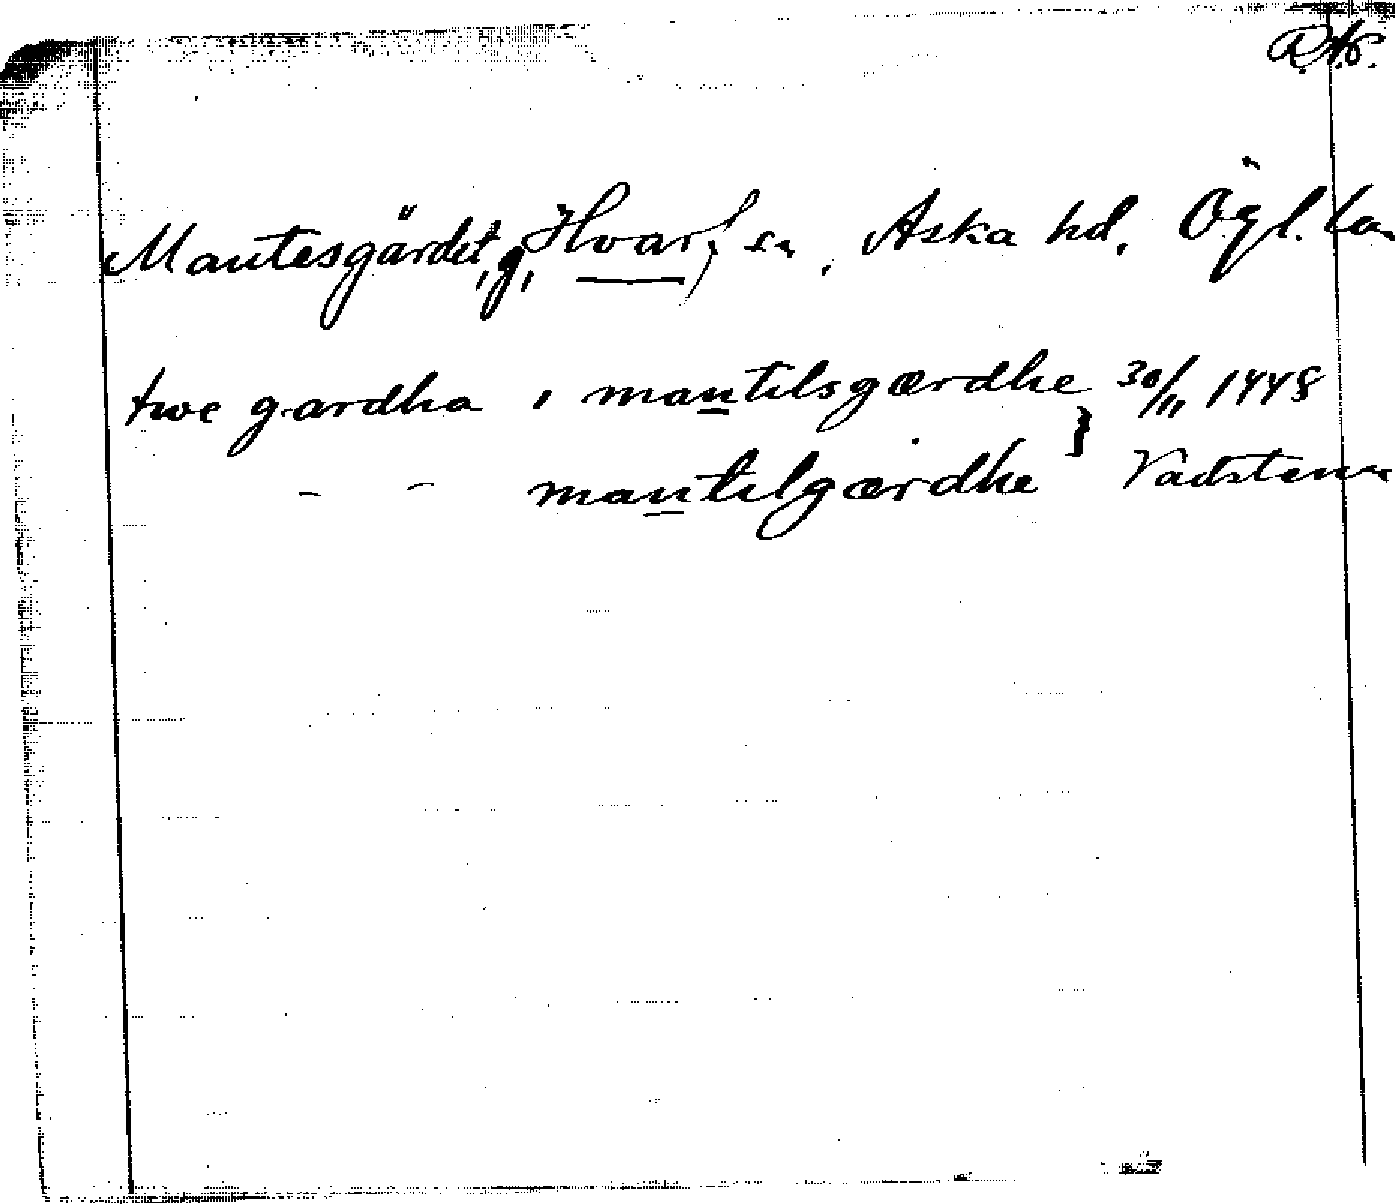 R.A.
Mantesgärdet, g, Hvarf sn, Aska hd, Ögl. la.
twe gardha i mantilsgærdhe } 30/11 1448
- - mantilgærdhe Vadstena